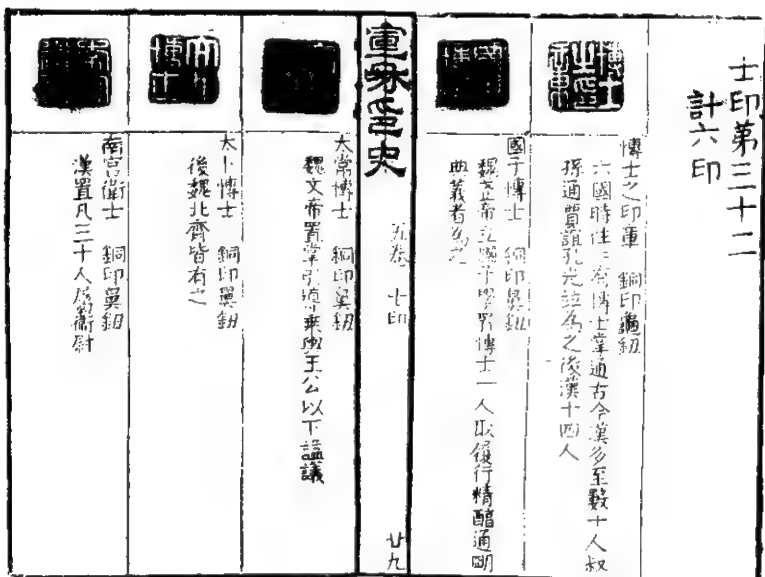 士印第三十二
計六印
博士之印章 銅印龜鈕
六國時往往有博士掌通古今漢多至數十人叔
孫通賈誼孔光並為之後漢十四人
國子博士 銅印鼻鈕
魏文帝立國子學置博士一人取履行精醇通明
典義者為之
宣和印史
五卷 士印
廿九
太常博士 銅印鼻鈕
魏文帝置掌引導乘輿王公以下謚議
太卜博士 銅印鼻鈕
後魏北齊皆有之
南宮衛士 銅印鼻鈕
漢置凡三十人屬衛尉